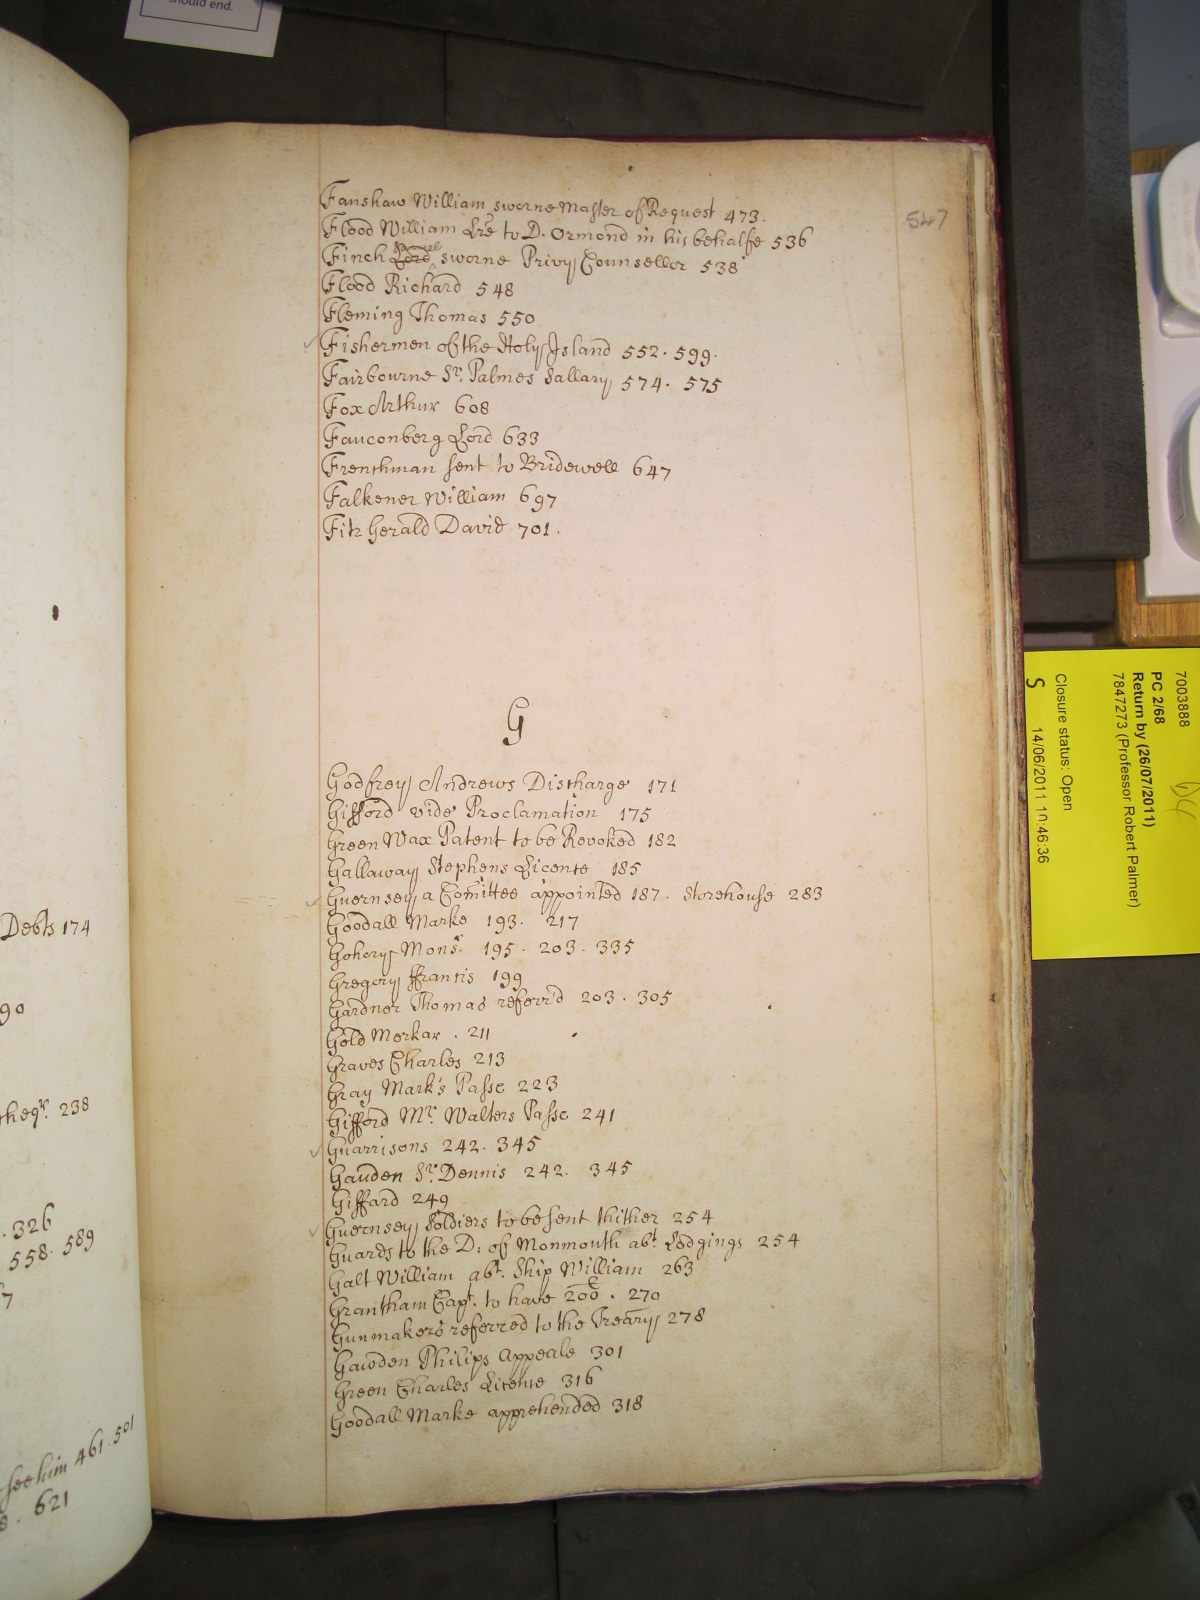 should end.
547
Fanshaw William sworne Master of Request 473.
Flood William Lre to D. Ormond in his behalfe 536
Finch Lord Daniel sworne Privy Counsellor 538
Flood Richard 548
Fleming Thomas 550
Fishermen of the Holy Island 552. 599.
Fairbourne Sr. Palmes Sallary 574. 575
Fox Arthur 608
Fauconberg Lord 633
Frenchman sent to Bridewell 647
Falkener William 697
Fitz Gerald David 701.
G
Godfrey Andrews Discharge 171
Gifford vide Proclamation 175
Green Wax Patent to be Revoked 182
Gallaway Stephens Licence 185
Guernsey a Comittee appointed 187. Storehouse 283
Goodall Marke 193. 217
Gohory Monsr. 195. 203. 335
Gregory ffrancis 199
Gardner Thomas referr'd 203. 305
Gold Merkar. 211
Graves Charles 213
Gray Mark's Passe 223
Gifford Mr. Walters Passe 241
Guarrisons 242. 345
Gauden Sr. Dennis 242. 345
Giffard 249
Guernsey Soldiers to be sent thither 254
Guards to the D: of Monmouth abt. Lodgings 254
Galt William abt. Ship William 263
Grantham Capt. to have 200£. 270
Gunmakers referred to the Treary 278
Gawden Philips Appeale 301
Green Charles Licence 316
Goodall Marke apprehended 318
Debts 174
90
cheqr. 238
. 326
558. 589
7
see him 461. 501
8. 621
7003888
PC 2/68
Return by (26/07/2011)
7847273 (Professor Robert Palmer)
Closure status: Open
S 14/06/2011 10:46:36